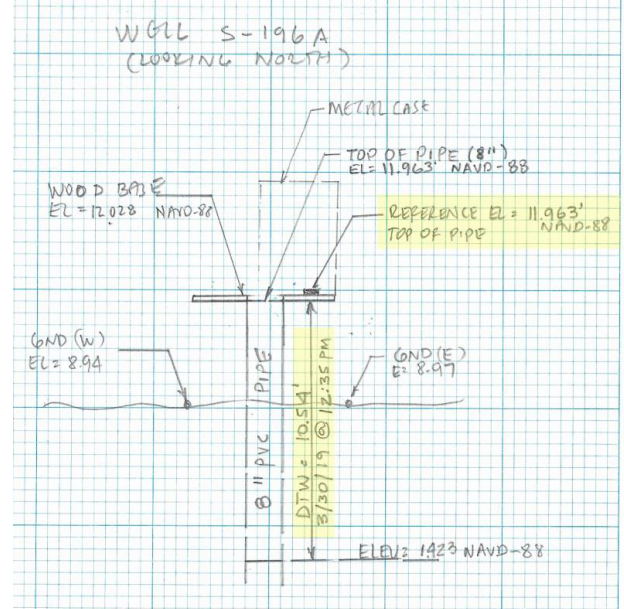 WELL S-196A
(LOOKING NORTH)
METAL CASE
TOP OF PIPE (8")
EL= 11.963' NAVD-88
WOOD BASE
EL = 12.028 NAVD-88
REFERENCE EL = 11.963'
NAVD-88
TOP OF PIPE
GND (W)
EL= 8.94
GND (E)
E= 8.97
8" PVC PIPE
DTW = 10.54'
3/30/19 @ 12:35 PM
ELEV= 1.423 NAVD-88